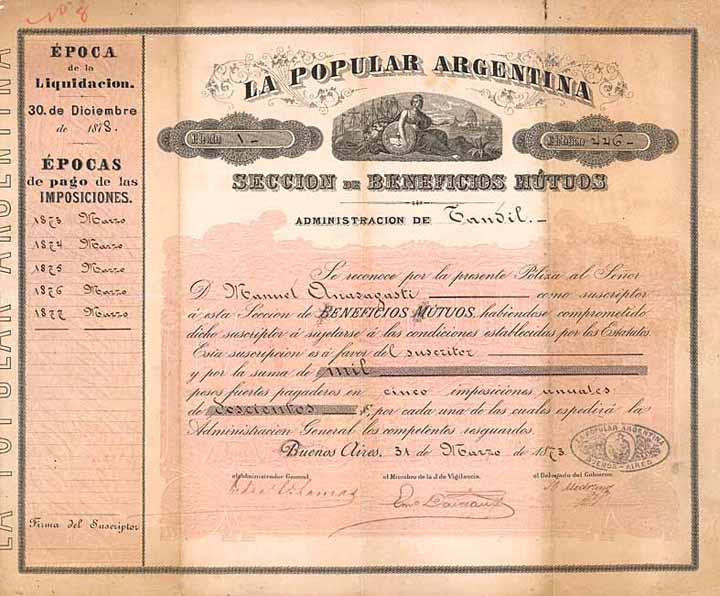 ÉPOCA
de la
Liquidacion.
30. de Diciembre
de 1878.
ÉPOCAS
de pago de las
IMPOSICIONES.
1873 Marzo
1874 Marzo
1875 Marzo
1876 Marzo
1877 Marzo
Firma del Suscriptor
LA POPULAR ARGENTINA
LA POPULAR ARGENTINA
1- 226-
SECCION DE BENEFICIOS MÚTUOS
ADMINISTRACION DE Tandil.-
Se reconoce por la presente Poliza al Señor
D. Manuel Anasagasti como suscriptor
á esta Seccion de BENEFICIOS MÚTUOS, habiendose comprometido
dicho suscriptor á sujetarse á las condiciones establecidas por los Estatutos.
Esta suscripcion es á favor del suscritor
y por la suma de mil
pesos fuertes pagaderos en cinco imposiciones anuales
de doscientos $f. por cada una de las cuales expedirá la
Administracion General los competentes resguardos.
Buenos Aires, 31 de Marzo de 1873
LA POPULAR ARGENTINA
BUENOS-AIRES
el Administrador General, el Miembro de la J. de Vigilancia. el Delegado del Gobierno